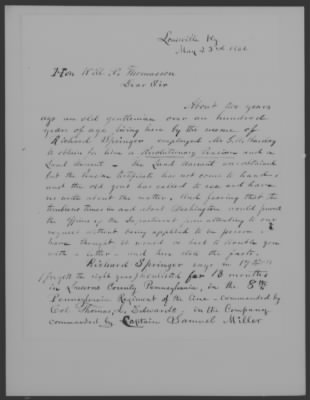 Louisville Ky
May 23rd
Hon Will P. Thomasson
Dear Sir
About two years
ago an old gentleman over one hundred
years of age living here by the name of
Richard Springer employed Mr.
to obtain for him a Revolutionary Pension and a
Land Warrant - the Land Warrant was obtained
but the Pension Certificate has not come to hand,
and the old gent has called to see and have
us write about the matter. And fearing that the
times in and about Washington would prevent
the Officers of the Department from attending to our
request without being applied to in person. I
have thought it would be best to trouble you
with a letter - and here state the facts.
Richard Springer says in 177
the right year) he enlisted for 18 months
in County Pennsylvania, in the 8th
Pennsylvania Regiment of the line - commanded by
Col Thomas Edwards, in the Company
commanded by Captain Samuel Miller